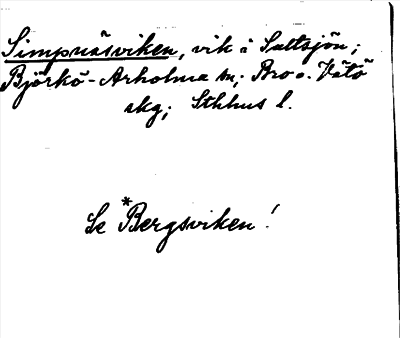 Simpnäsviken, vik i Saltsjön;
Björkö-Arholma sn; Bro o. Vätö
skg; Sthlms l.
Se *Bergsviken!